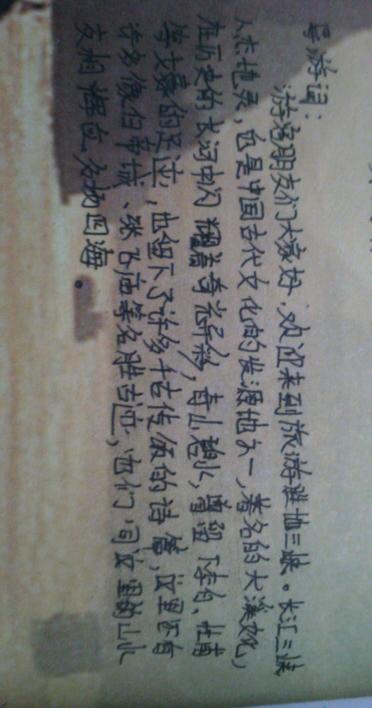 导游词：
游客朋友们大家好，欢迎来到旅游胜地三峡。长江三峡
人杰地灵，也是中国古代文化的发源地之一，著名的大溪文化，
在历史的长河中闪耀着奇光异彩，青山碧水，曾留下李白、杜甫
等大家的足迹，也留下了许多千古传颂的诗篇，这里还有
许多像白帝城、张飞庙等名胜古迹，它们同这里的山水
交相辉应，名扬四海。